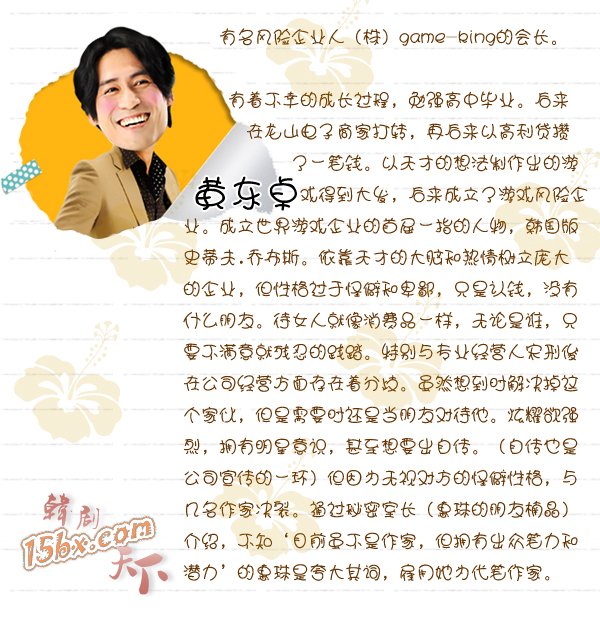 有名风险企业人（株）game-king的会长。
有着不幸的成长过程，勉强高中毕业。后来
在龙山电子商家打转，再后来以高利贷攒
了一笔钱。以天才的想法制作出的游
黄东卓
戏得到大发，后来成立了游戏风险企
业。成立世界游戏企业的首屈一指的人物，韩国版
史蒂夫.乔布斯。依靠天才的大脑和热情树立庞大
的企业，但性格过于怪僻和卑鄙，只是认钱，没有
什么朋友。待女人就像消费品一样，无论是谁，只
要不满意就残忍的践踏。特别与专业经营人宋刑俊
在公司经营方面存在着分歧。虽然想到时解决掉这
个家伙，但是需要时还是当朋友对待他。炫耀欲强
烈，拥有明星意识，甚至想要出自传。（自传也是
公司宣传的一环）但因为无视对方的怪僻性格，与
几名作家决裂。通过秘密室长（象珠的朋友楠品）
介绍，不知‘目前虽不是作家，但拥有出众笔力和
潜力’的象珠是夸大其词，雇用她为代笔作家。
韩剧
15bx.com
天下